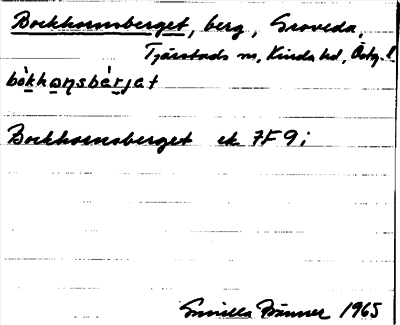 Bockhornsberget, berg, Groveda,
Tjärstads sn, Kinda hd, Östg. l.
bòkhɷṇsbàrjat
Bockhornsberget ek 7F 9i
Gunilla Bränner 1965